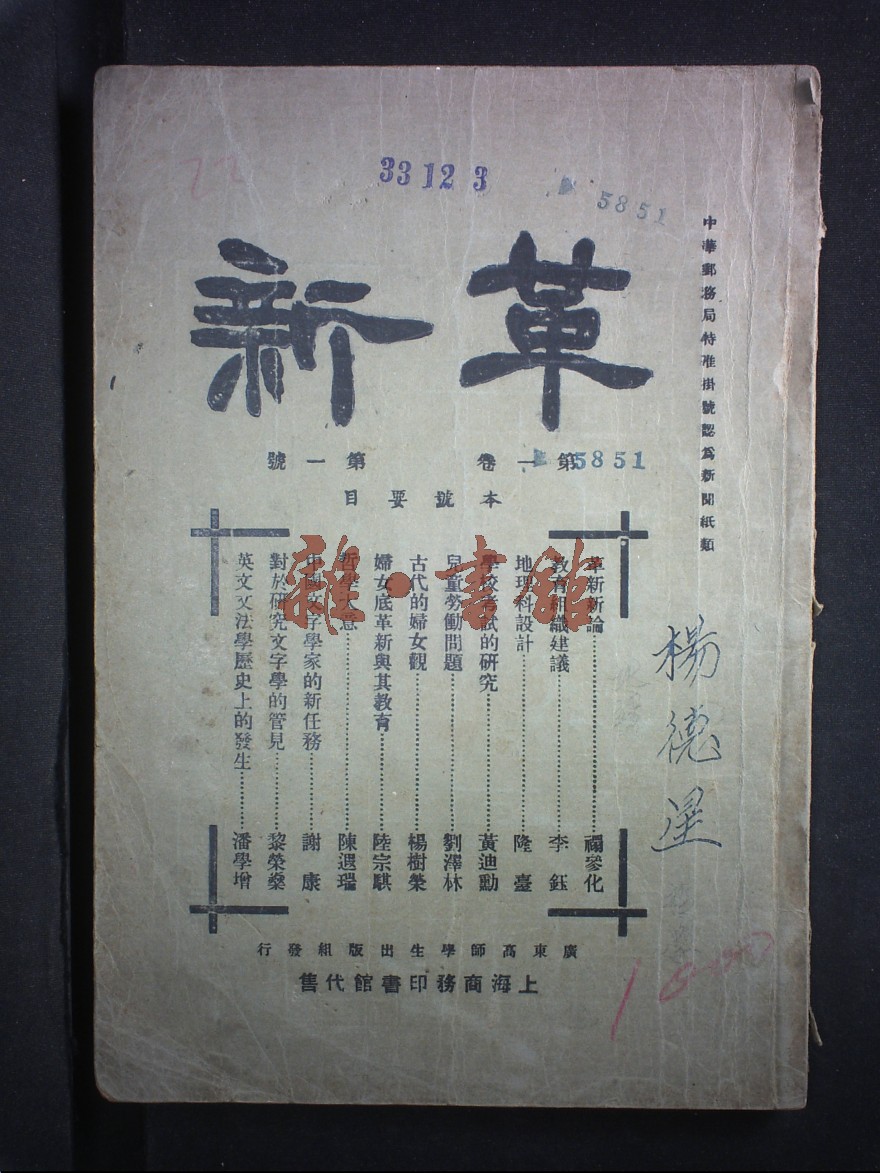 33 12 3
5851
中華郵務局特准掛號認爲新聞紙類
革新
第一卷 第一號
5851
本號要目
革新新論……禤參化
教育組織建議……李鈺
地理科設計……隆臺
學校考試的研究……黃迪勳
兒童勞働問題……劉澤林
古代的婦女觀……楊樹榮
婦女底革新與其教育……陸宗騏
哲學大意……陳遐瑞
中國文字學家的新任務……謝康
對於研究文字學的管見……黎榮燊
英文文法學歷史上的發生……潘學增
雜·書館
廣東高師學生出版組發行
上海商務印書館代售